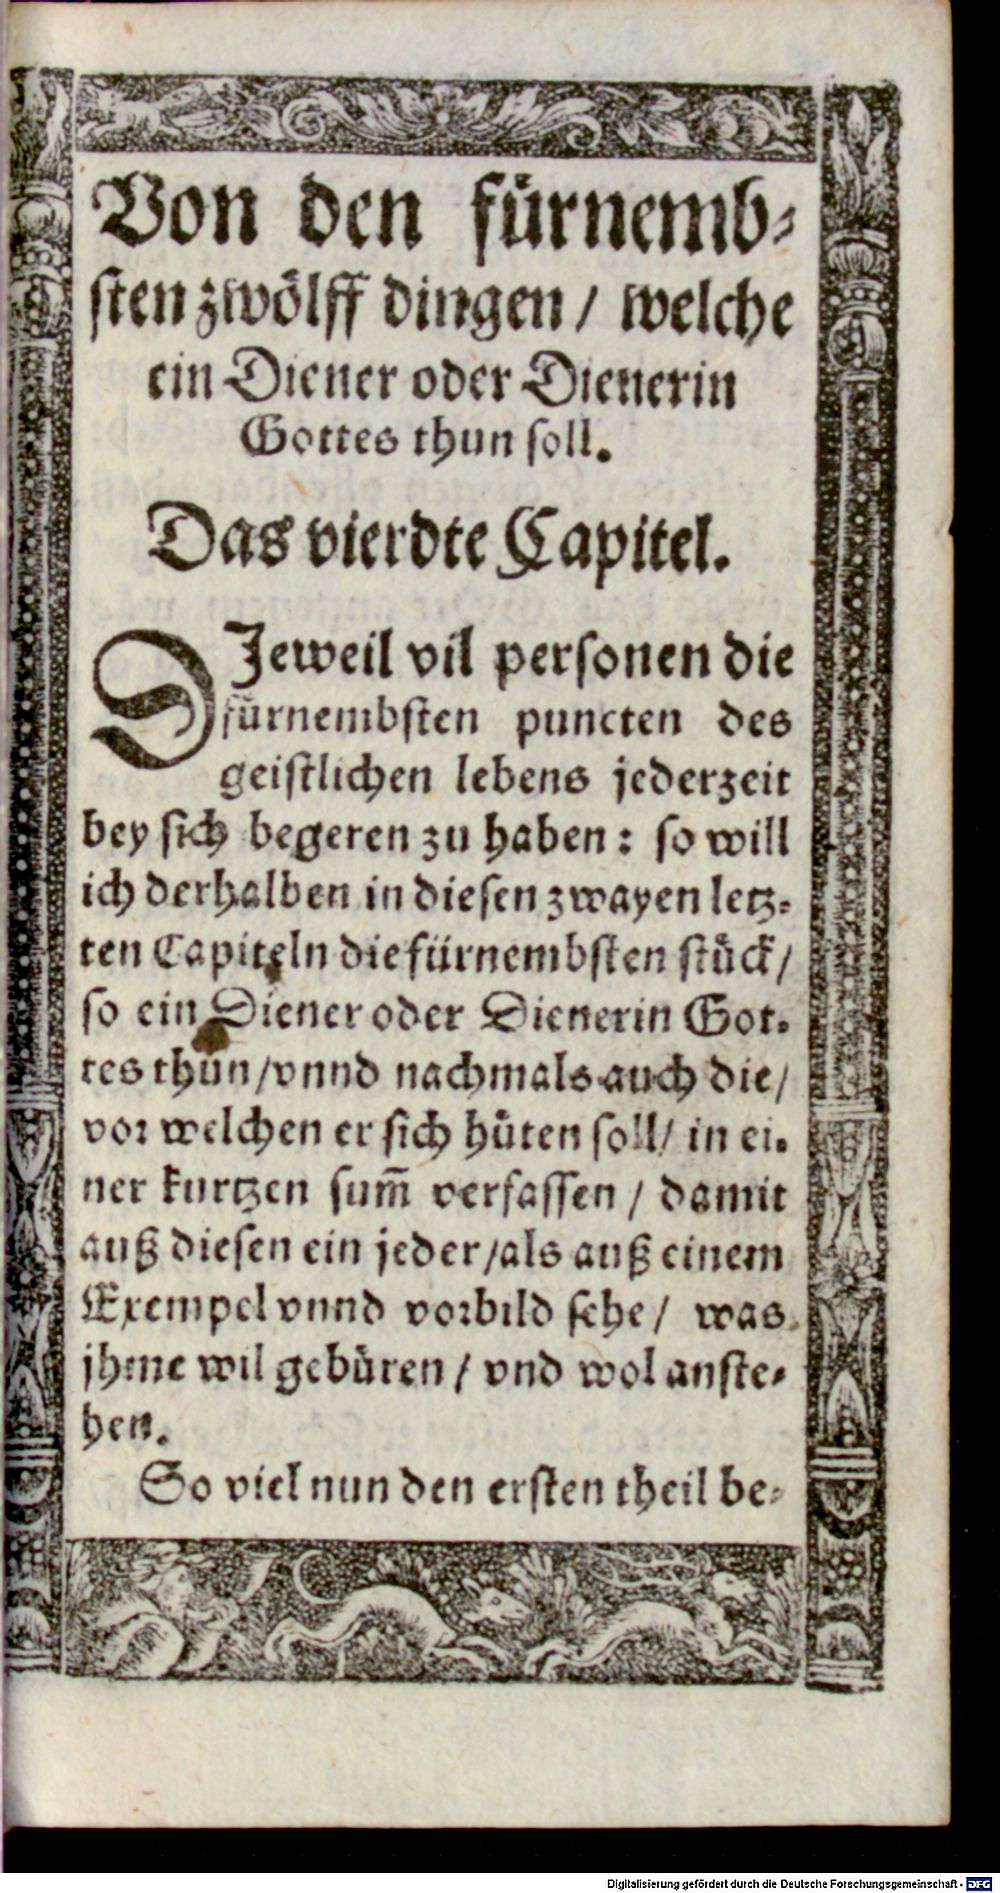 Von den fürnemb-
sten zwölff dingen / welche
ein Diener oder Dienerin
Gottes thun soll.
Das vierdte Capitel.
DJeweil vil personen die
fürnembsten puncten des
geistlichen lebens jederzeit
bey sich begeren zu haben: so will
ich derhalben in diesen zwayen letz-
ten Capiteln die fürnembsten stück /
so ein Diener oder Dienerin Got-
tes thun / vnnd nachmals auch die /
vor welchen er sich hüten soll / in ei-
ner kurtzen sum̄ verfassen / damit
auß diesen ein jeder / als auß einem
Exempel vnnd vorbild sehe / was
jhme wil gebüren / vnd wol anste-
hen.
So viel nun den ersten theil be-
Digitalisierung gefördert durch die Deutsche Forschungsgemeinschaft - DFG